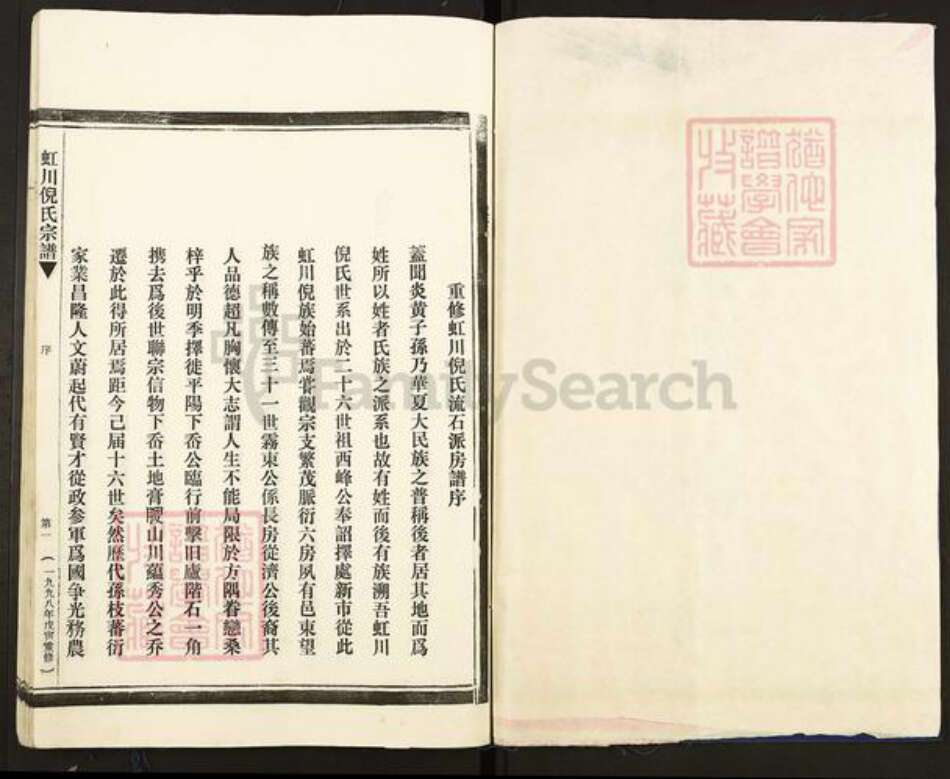 重修虹川倪氏流石派房譜序
蓋聞炎黃子孫乃華夏大民族之普稱後者居其地而爲
姓所以姓者氏族之派系也故有姓而後有族溯吾虹川
倪氏世系出於二十六世祖西峰公奉詔擇處新市從此
虹川倪族始蕃焉嘗觀宗支繁茂脈衍六房夙有邑東望
族之稱數傳至三十一世霧東公係長房從濟公後裔其
人品德超凡胸懷大志謂人生不能局限於方隅眷戀桑
梓乎於明季擇徙平陽下岙公臨行前擊旧廬階石一角
携去爲後世聯宗信物下岙土地膏腴山川蘊秀公之喬
遷於此得所居焉距今已届十六世矣然歷代孫枝蕃衍
家業昌隆人文蔚起代有賢才從政参軍爲國争光務農
虹川倪氏宗譜
序
第一
(一九九八年戊寅重修)
猶他家
譜學會
收藏
猶他家
譜學會
收藏
FamilySearch